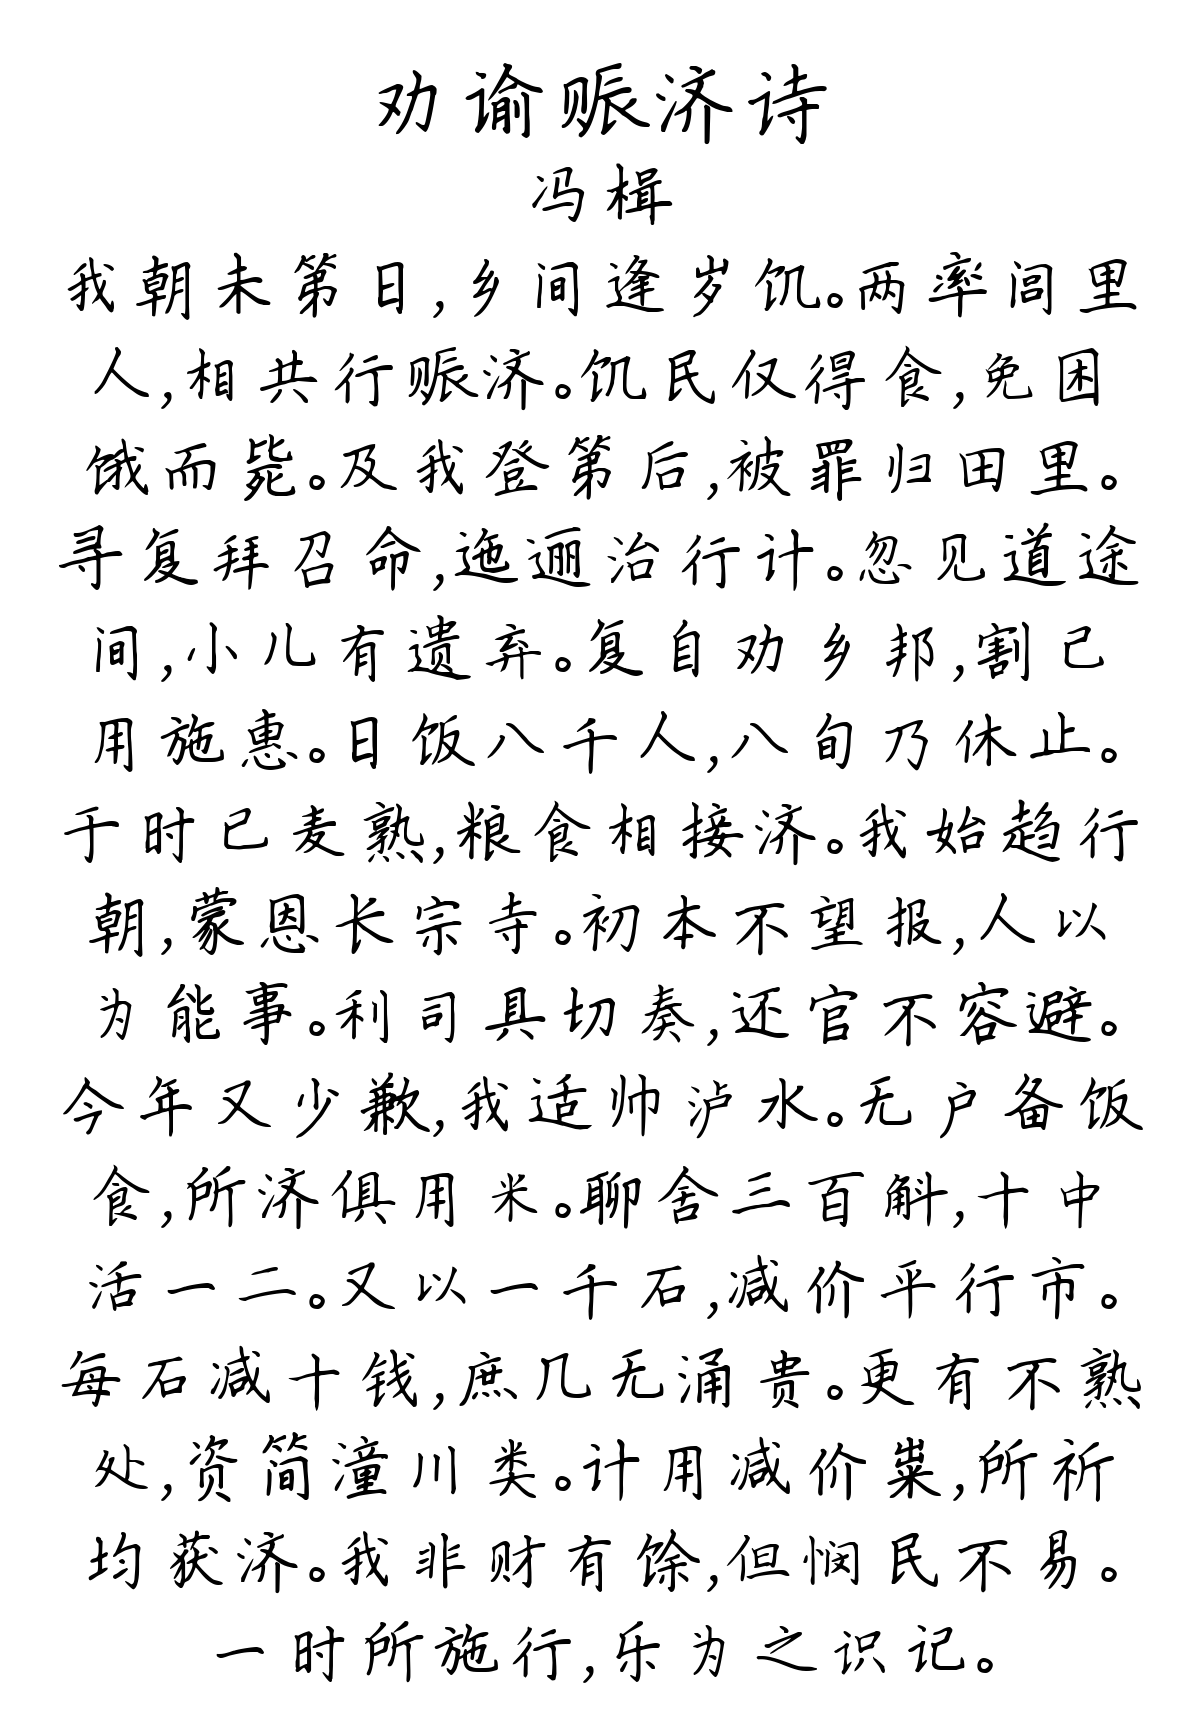 劝谕赈济诗
冯楫
我朝未第日,乡间逢岁饥。两率闾里
人,相共行赈济。饥民仅得食,免困
饿而毙。及我登第后,被罪归田里。
寻复拜召命,迤逦治行计。忽见道途
间,小儿有遗弃。复自劝乡邦,割己
用施惠。日饭八千人,八旬乃休止。
于时已麦熟,粮食相接济。我始趋行
朝,蒙恩长宗寺。初本不望报,人以
为能事。利司具切奏,还官不容避。
今年又少歉,我适帅泸水。无户备饭
食,所济俱用米。聊舍三百斛,十中
活一二。又以一千石,减价平行市。
每石减十钱,庶几无涌贵。更有不熟
处,资简潼川类。计用减价粜,所祈
均获济。我非财有馀,但悯民不易。
一时所施行,乐为之识记。